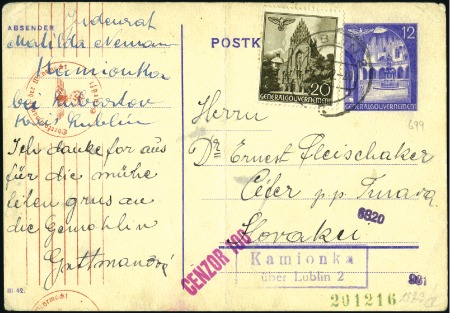 ABSENDER
Judenrat
Matilda Neman
Kamionka
bei Lubartow
Kreis Lublin
Ich danke for aus
für die mühe
eilen grus an
die Gemahlin
POSTK
12
GENERALGOUVERNEMENT
20
GENERALGOUVERNEMENT
699
Herrn
Dr Ernest Fleischaker
Cifer p.p. Trnava
Slovakei
6920
CENZOR 106
Kamionka
über Lublin 2
201216
III 42.